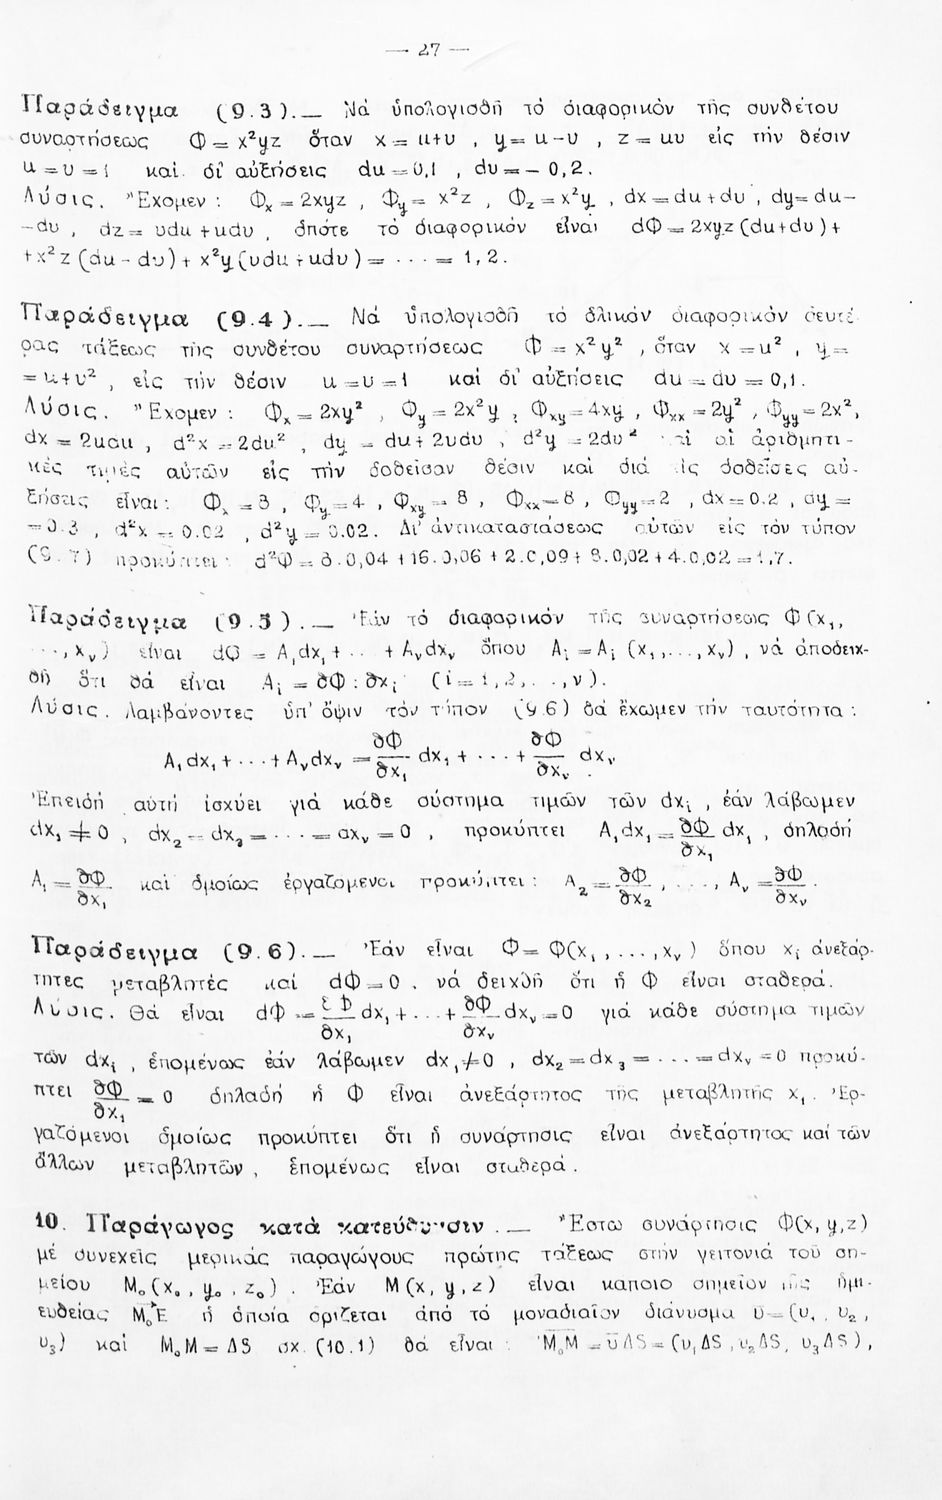 — 27 —
Παράδειγμα (9.3).— Νά ὑπολογισθῆ τό διαφορικόν τῆς συνθέτου
συναρτήσεως Φ = x²yz ὅταν x = u+υ , y = u-υ , z = uυ εἰς τήν θέσιν
u = υ = 1 καί δι' αὐξήσεις du = 0,1 , dυ = - 0,2.
Λύσις. Ἔχομεν : Φₓ = 2xyz , Φᵧ = x²z , Φ_z = x²y , dx = du + dυ , dy = du-
-dυ , dz = υdu + udυ , ὁπότε τό διαφορικόν εἶναι dΦ = 2xyz (du+dυ) +
+ x²z (du - dυ) + x²y (υdu + udυ) = ··· = 1,2.
Παράδειγμα (9.4).— Νά ὑπολογισθῆ τό ὁλικόν διαφορικόν δευτέ-
ρας τάξεως τῆς συνθέτου συναρτήσεως Φ = x²y² , ὅταν x = u² , y =
= u+υ² , εἰς τήν θέσιν u = υ = 1 καί δι' αὐξήσεις du = dυ = 0,1.
Λύσις. Ἔχομεν : Φₓ = 2xy² , Φᵧ = 2x²y , Φₓᵧ = 4xy , Φₓₓ = 2y² , Φᵧᵧ = 2x²,
dx = 2udu , d²x = 2du² , dy = du + 2υdυ , d²y = 2dυ² καί αἱ ἀριθμητι-
κές τιμές αὐτῶν εἰς τήν δοθεῖσαν θέσιν καί διά τίς δοθεῖσες αὐ-
ξήσεις εἶναι: Φₓ = 8 , Φᵧ = 4 , Φₓᵧ = 8 , Φₓₓ = 8 , Φᵧᵧ = 2 , dx = 0.2 , dy =
= 0.3 , d²x = 0.02 , d²y = 0.02. Δι' ἀντικαταστάσεως αὐτῶν εἰς τόν τύπον
(9.7) προκύπτει: d²Φ = 8.0,04 + 16.0,06 + 2.0,09 + 8.0,02 + 4.0,02 = 1,7.
Παράδειγμα (9.5).— Ἐάν τό διαφορικόν τῆς συναρτήσεως Φ(x₁,
···, xᵥ) εἶναι dΦ = A₁dx₁ + ·· + Aᵥdxᵥ ὅπου Aᵢ = Aᵢ (x₁,...,xᵥ) , νά ἀποδειχ-
θῆ ὅτι θά εἶναι Aᵢ = ∂Φ : ∂xᵢ (i = 1,2,..,ν).
Λύσις. Λαμβάνοντες ὑπ' ὄψιν τόν τύπον (9.6) θά ἔχωμεν τήν ταυτότητα :
A₁dx₁ + ··· + Aᵥdxᵥ = ∂Φ/∂x₁ dx₁ + ··· + ∂Φ/∂xᵥ dxᵥ .
Ἐπειδή αὐτή ἰσχύει γιά κάθε σύστημα τιμῶν τῶν dxᵢ , ἐάν λάβωμεν
dx₁ ≠ 0 , dx₂ = dx₃ = ··· = dxᵥ = 0 , προκύπτει A₁dx₁ = ∂Φ/∂x₁ dx₁ , δηλαδή
A₁ = ∂Φ/∂x₁ καί ὁμοίως ἐργαζόμενοι προκύπτει : A₂ = ∂Φ/∂x₂ , ..., Aᵥ = ∂Φ/∂xᵥ .
Παράδειγμα (9.6).— Ἐάν εἶναι Φ = Φ(x₁,...,xᵥ) ὅπου xᵢ ἀνεξάρ-
τητες μεταβλητές καί dΦ = 0 , νά δειχθῆ ὅτι ἡ Φ εἶναι σταθερά.
Λύσις. Θά εἶναι dΦ = ∂Φ/∂x₁ dx₁ + ... + ∂Φ/∂xᵥ dxᵥ = 0 γιά κάθε σύστημα τιμῶν
τῶν dxᵢ , ἑπομένως ἐάν λάβωμεν dx₁ ≠ 0 , dx₂ = dx₃ = ··· = dxᵥ = 0 προκύ-
πτει ∂Φ/∂x₁ = 0 δηλαδή ἡ Φ εἶναι ἀνεξάρτητος τῆς μεταβλητῆς x₁. Ἐρ-
γαζόμενοι ὁμοίως προκύπτει ὅτι ἡ συνάρτησις εἶναι ἀνεξάρτητος καί τῶν
ἄλλων μεταβλητῶν , ἑπομένως εἶναι σταθερά .
10. Παράγωγος κατά κατεύθυνσιν .— Ἔστω συνάρτησις Φ(x, y, z)
μέ συνεχεῖς μερικάς παραγώγους πρώτης τάξεως στήν γειτονιά τοῦ ση-
μείου M₀ (x₀ , y₀ , z₀) . Ἐάν M (x, y, z) εἶναι κάποιο σημεῖον τῆς ἡμι-
ευθείας M₀E ἡ ὁποία ὁρίζεται ἀπό τό μοναδιαῖον διάνυσμα υ = (υ₁ , υ₂ ,
υ₃) καί M₀M = ΔS σχ. (10.1) θά εἶναι : M₀M = υΔS = (υ₁ΔS , υ₂ΔS , υ₃ΔS),